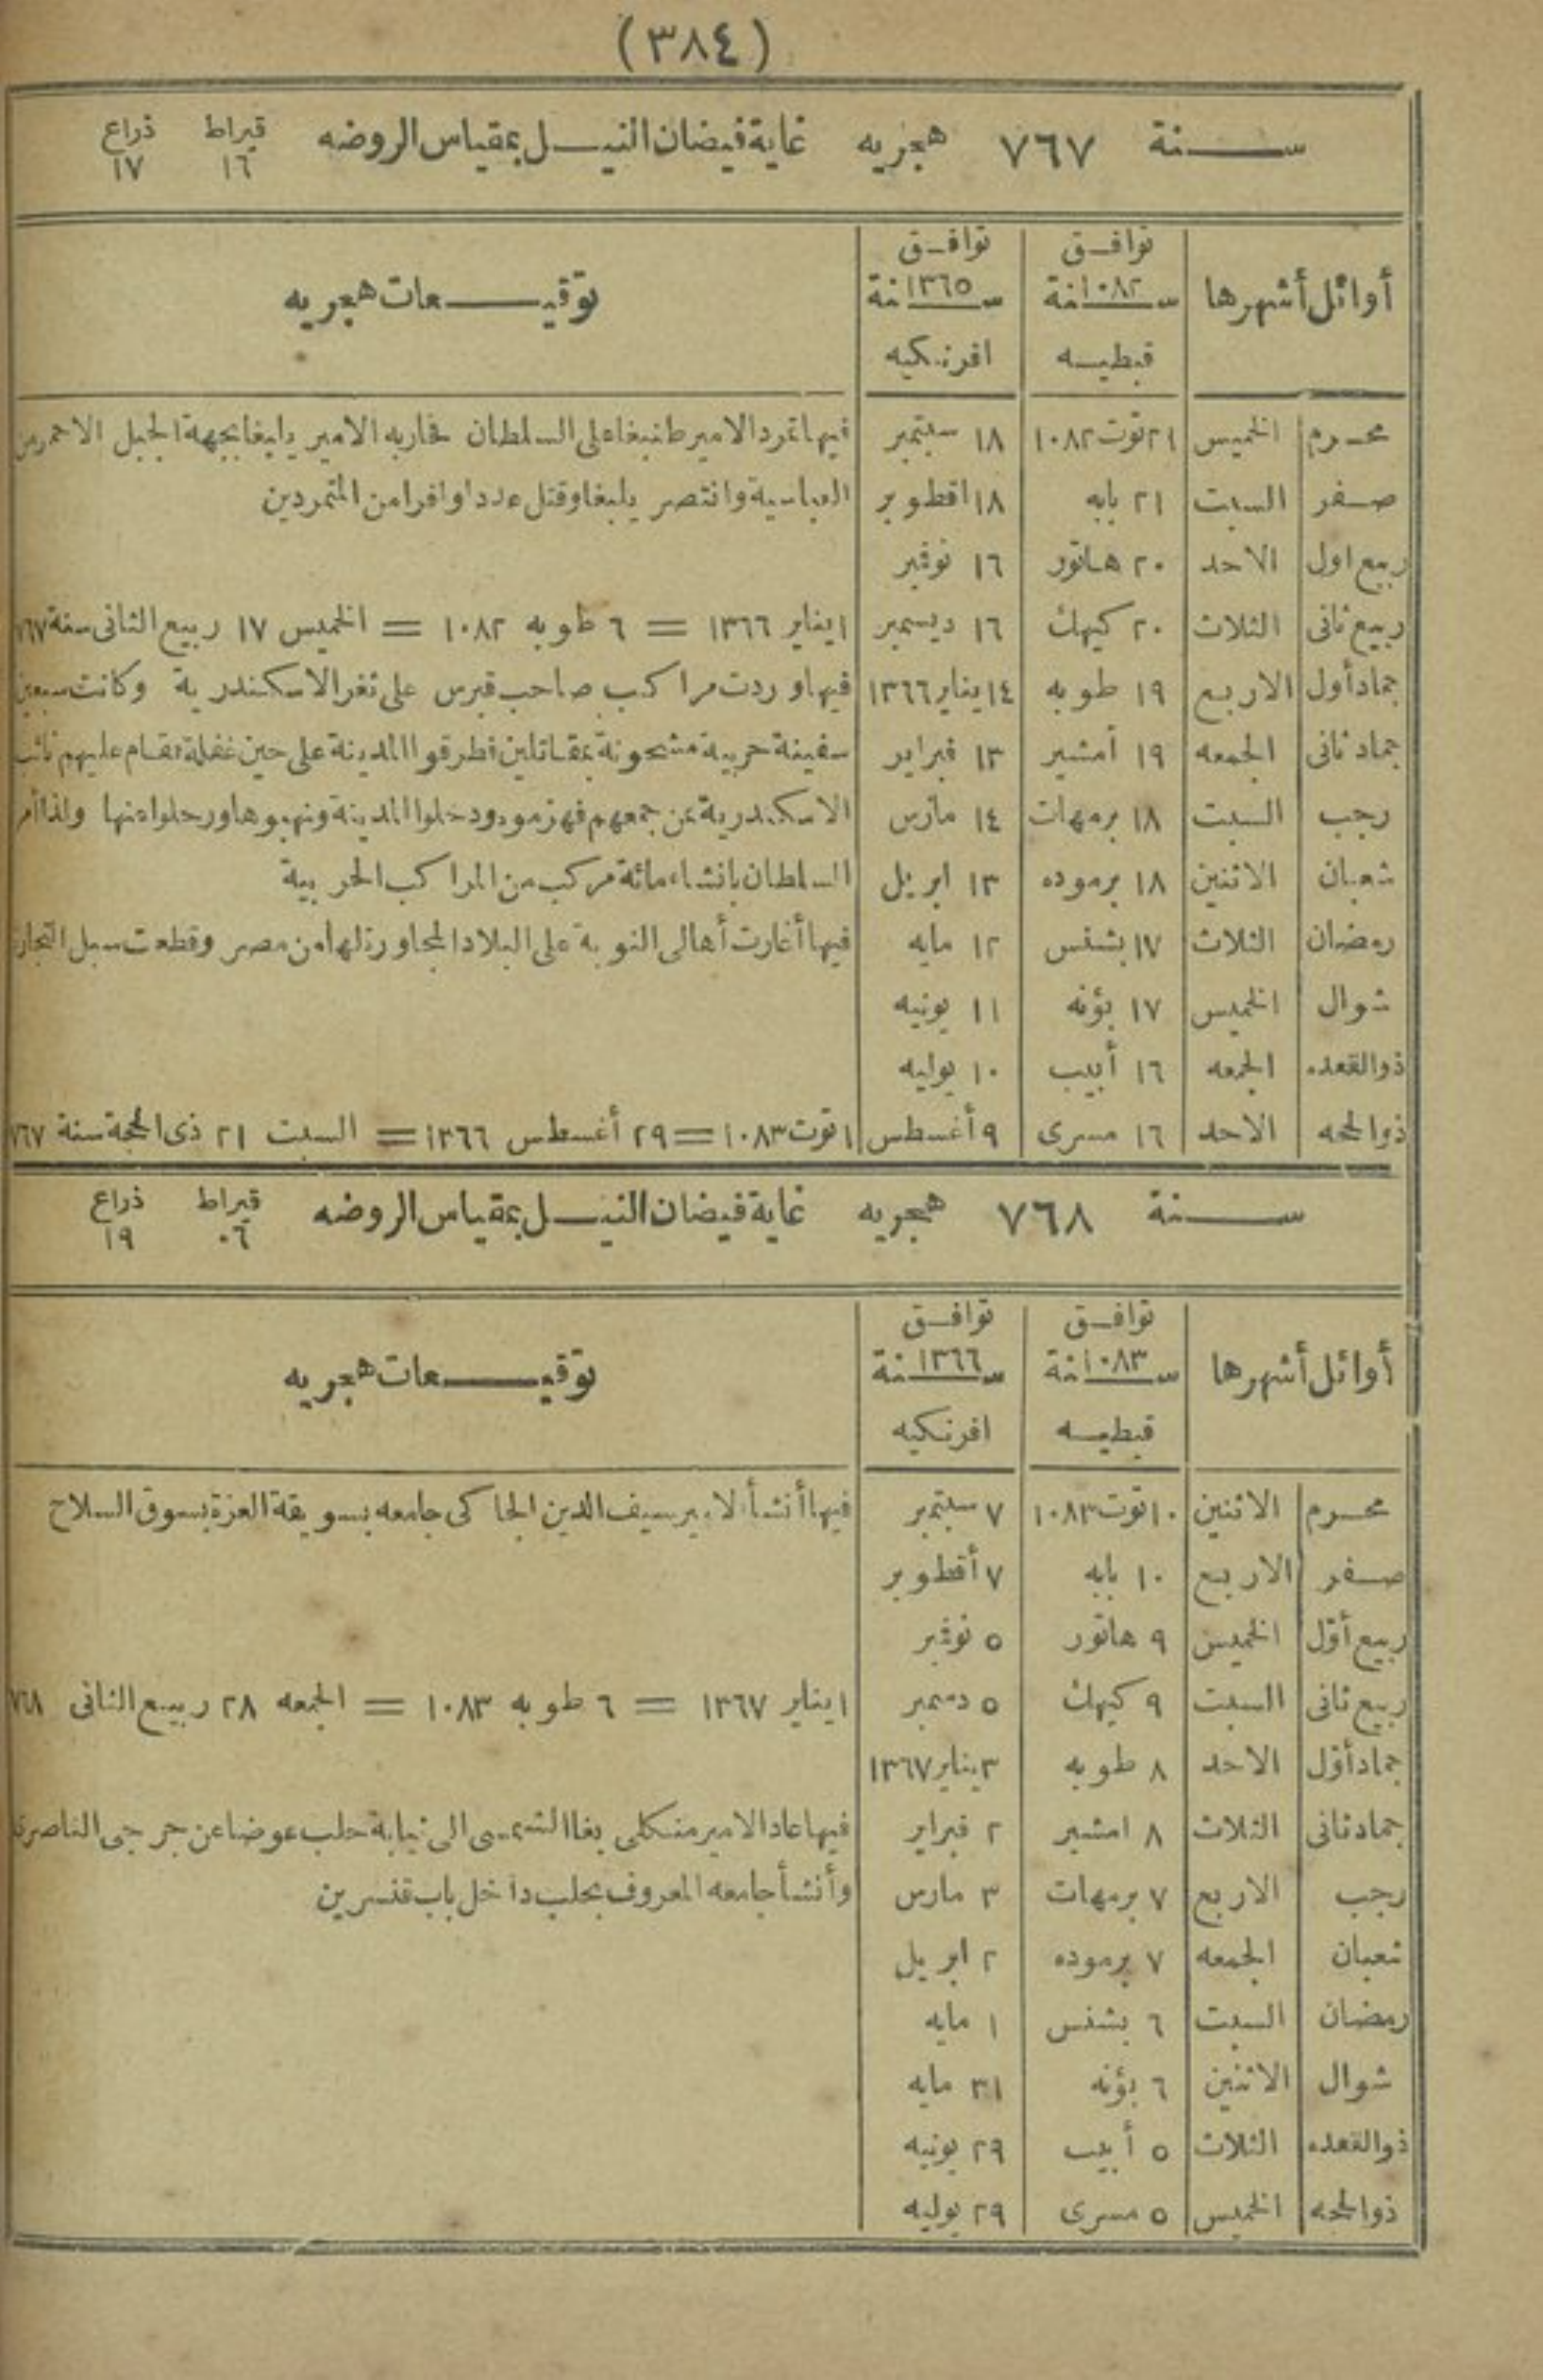 (٣٨٤)
سنة ٧٦٧ هجريه غاية فيضان النيل بمقياس الروضه قيراط ١٦ ذراع ١٧
أوائل أشهرها توافق سنة ١٠٨٢ قبطيه توافق سنة ١٣٦٥ افرنكيه توقيعات هجريه
محرم الخميس ٢١ توت ١٠٨٢ ١٨ سبتمبر فيها تمرد الامير طنبغا على السلطان فحاربه الامير يلبغا بجهة الجبل الاحمر من
صفر السبت ٢١ بابه ١٨ اقطوبر العباسية وانتصر يلبغا وقتل عددا وافرا من المتمردين
ربيع اول الاحد ٢٠ هاتور ١٦ نوفمبر
ربيع ثانى الثلاث ٢٠ كيهك ١٦ ديسمبر ١ يناير ١٣٦٦ = ٦ طوبه ١٠٨٢ = الخميس ١٧ ربيع الثانى سنة ٧٦٧
جماد أول الاربع ١٩ طوبه ١٤ يناير ١٣٦٦ فيها وردت مراكب صاحب قبرس على ثغر الاسكندرية وكانت سبعين
جماد ثانى الجمعه ١٩ أمشير ١٣ فبراير سفينة حربية مشحونة بمقاتلين فطرقوا المدينة على حين غفلة فقام عليهم نائب
رجب السبت ١٨ برمهات ١٤ مارس الاسكندرية بمن جمعهم فهزموه ودخلوا المدينة ونهبوها ورحلوا منها ولذا أمر
شعبان الاثنين ١٨ برموده ١٣ ابريل السلطان بانشاء مائة مركب من المراكب الحربية
رمضان الثلاث ١٧ بشنس ١٢ مايه فيها أغارت أهالى النوبة على البلاد المجاورة لها من مصر وقطعت سبل التجارة
شوال الخميس ١٧ بؤنه ١١ يونيه
ذوالقعده الجمعه ١٦ أبيب ١٠ يوليه
ذوالحجه الاحد ١٦ مسرى ٩ أغسطس ١ توت ١٠٨٣ = ٢٩ أغسطس ١٣٦٦ = السبت ٢١ ذى الحجة سنة ٧٦٧
سنة ٧٦٨ هجريه غاية فيضان النيل بمقياس الروضه قيراط ٠٦ ذراع ١٩
أوائل أشهرها توافق سنة ١٠٨٣ قبطيه توافق سنة ١٣٦٦ افرنكيه توقيعات هجريه
محرم الاثنين ١٠ توت ١٠٨٣ ٧ سبتمبر فيها أنشأ الامير سيف الدين الجاكى جامعه بسويقة العزة بسوق السلاح
صفر الاربع ١٠ بابه ٧ أقطوبر
ربيع أول الخميس ٩ هاتور ٥ نوفمبر
ربيع ثانى السبت ٩ كيهك ٥ دسمبر ١ يناير ١٣٦٧ = ٦ طوبه ١٠٨٣ = الجمعه ٢٨ ربيع الثانى ٧٦٨
جماد أول الاحد ٨ طوبه ٣ يناير ١٣٦٧
جماد ثانى الثلاث ٨ امشير ٢ فبراير فيها عاد الامير منكلى بغا الشمسى الى نيابة حلب عوضا عن جرجى الناصرى
رجب الاربع ٧ برمهات ٣ مارس وأنشأ جامعه المعروف بحلب داخل باب قنسرين
شعبان الجمعه ٧ برموده ٢ ابريل
رمضان السبت ٦ بشنس ١ مايه
شوال الاثنين ٦ بؤنه ٣١ مايه
ذوالقعده الثلاث ٥ أبيب ٢٩ يونيه
ذوالحجه الخميس ٥ مسرى ٢٩ يوليه